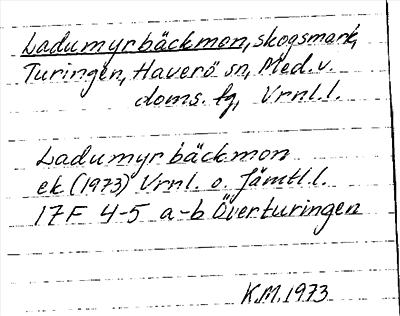 Ladumyrbäckmon, skogsmark,
Turingen, Haverö sn, Med. v.
doms. fg, Vrnl. l.
Ladumyrbäckmon
ek (1973) Vrnl. o. Jämtl. l.
17F 4-5 a-b Överturingen
K.M. 1973